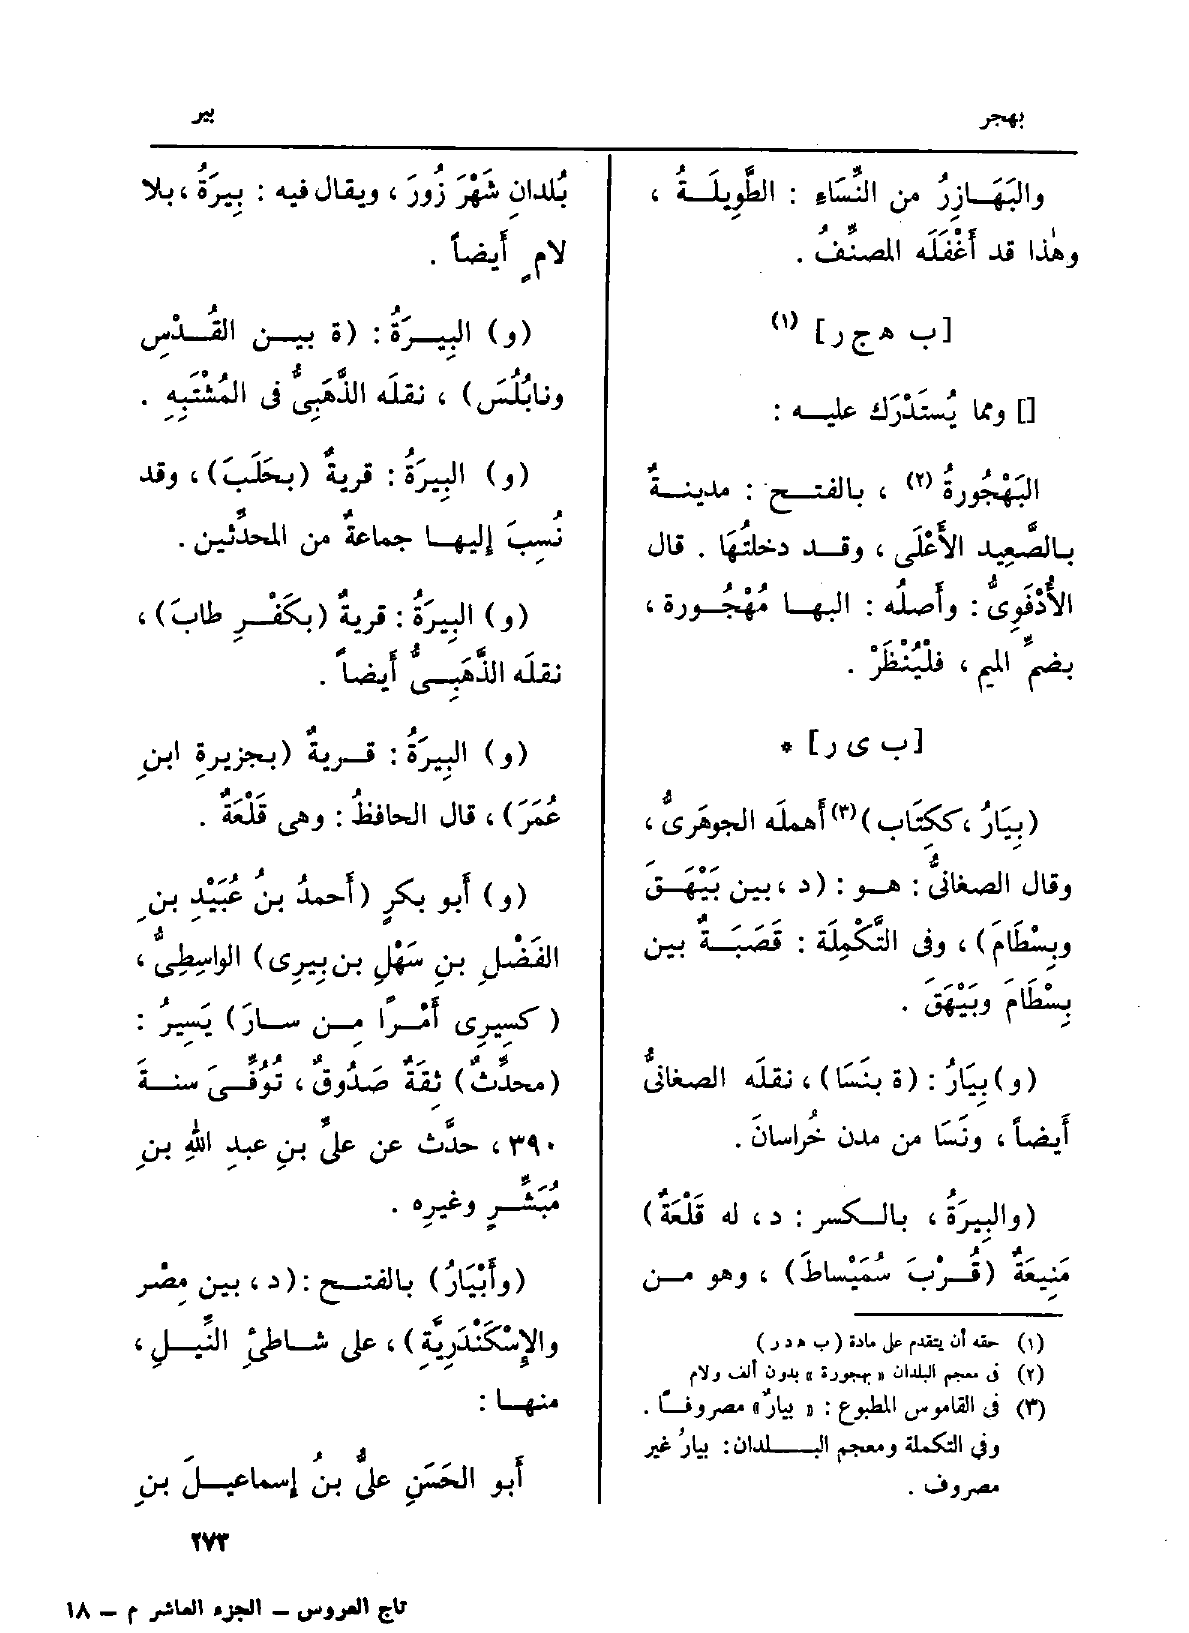 بهجر
بير
والبَهَازِرُ من النِّسَاءِ : الطَّوِيلَةُ ،
وهٰذا قد أَغْفَلَه المصنِّفُ .
[ب هـ ج ر] (١)
[] ومما يُسْتَدْرَك عليه :
البَهْجُورةُ (٢) ، بالفتح : مدينةٌ
بالصَّعِيد الأَعْلَى ، وقد دخلتُهَا . قال
الأُدْفَوِىُّ : وأَصلُه : البها مُهْجُورة ،
بضمِّ الميم ، فلْيُنْظَرْ .
[ب ى ر] *
(بِيَارُ ، ككِتَاب) (٣) أَهملَه الجوهَرِىُّ ،
وقال الصغانىُّ : هو : (د ، بين بَيْهَقَ
وبِسْطَامَ) ، وفى التَّكْمِلَة : قَصَبَةٌ بين
بِسْطَامَ وبَيْهَقَ .
(و) بِيَارُ : (ة بنَسَا) ، نقلَه الصغانىُّ
أَيضاً ، ونَسَا من مدن خُراسانَ .
(والبِيرَةُ ، بالكسر : د ، له قَلْعَةٌ)
مَنِيعَةٌ (قُرْبَ سُمَيْساطَ) ، وهو من
(١) حقه أن يتقدم على مادة (ب هـ د ر)
(٢) فى معجم البلدان « بهجورة » بدون ألف ولام
(٣) فى القاموس المطبوع : « بيارٌ » مصروفاً .
وفي التكملة ومعجم البلدان : بيارُ غير
مصروف .
بُلدانِ شَهْرَ زُورَ ، ويقال فيه : بِيرَةُ ، بلا
لامٍ أَيضاً .
(و) البِيرَةُ : (ة بين القُدْسِ
ونابُلُسَ) ، نقلَه الذَّهَبِىُّ فى المُشْتَبِهِ .
(و) البِيرَةُ : قريةٌ (بحَلَبَ) ، وقد
نُسِبَ إِليها جماعةٌ من المحدِّثين .
(و) البِيرَةُ : قريةٌ (بكَفْرِ طابَ) ،
نقلَه الذَّهَبِىُّ أَيضاً .
(و) البِيرَةُ : قريةٌ (بجزيرةِ ابنِ
عُمَرَ) ، قال الحافظُ : وهى قَلْعَةٌ .
(و) أَبو بكرٍ (أَحمدُ بنُ عُبَيْدِ بنِ
الفَضْلِ بنِ سَهْلِ بن بِيرِى) الواسِطِىُّ ،
(كسِيرِى أَمْرًا مِن سارَ) يَسِيرُ :
(محدِّثٌ) ثِقَةٌ صَدُوقٌ ، تُوُفِّىَ سنةَ
٣٩٠ ، حدَّث عن علىِّ بنِ عبدِ اللهِ بنِ
مُبَشِّرٍ وغيرِه .
(وأَبْيَارُ) بالفتح : (د ، بين مِصْر
والإِسْكَنْدَرِيَّةِ) ، على شاطئِ النِّيلِ ،
منها :
أَبو الحَسَنِ علىُّ بنُ إِسماعيلَ بنِ
٢٧٣
تاج العروس – الجزء العاشر م – ١٨